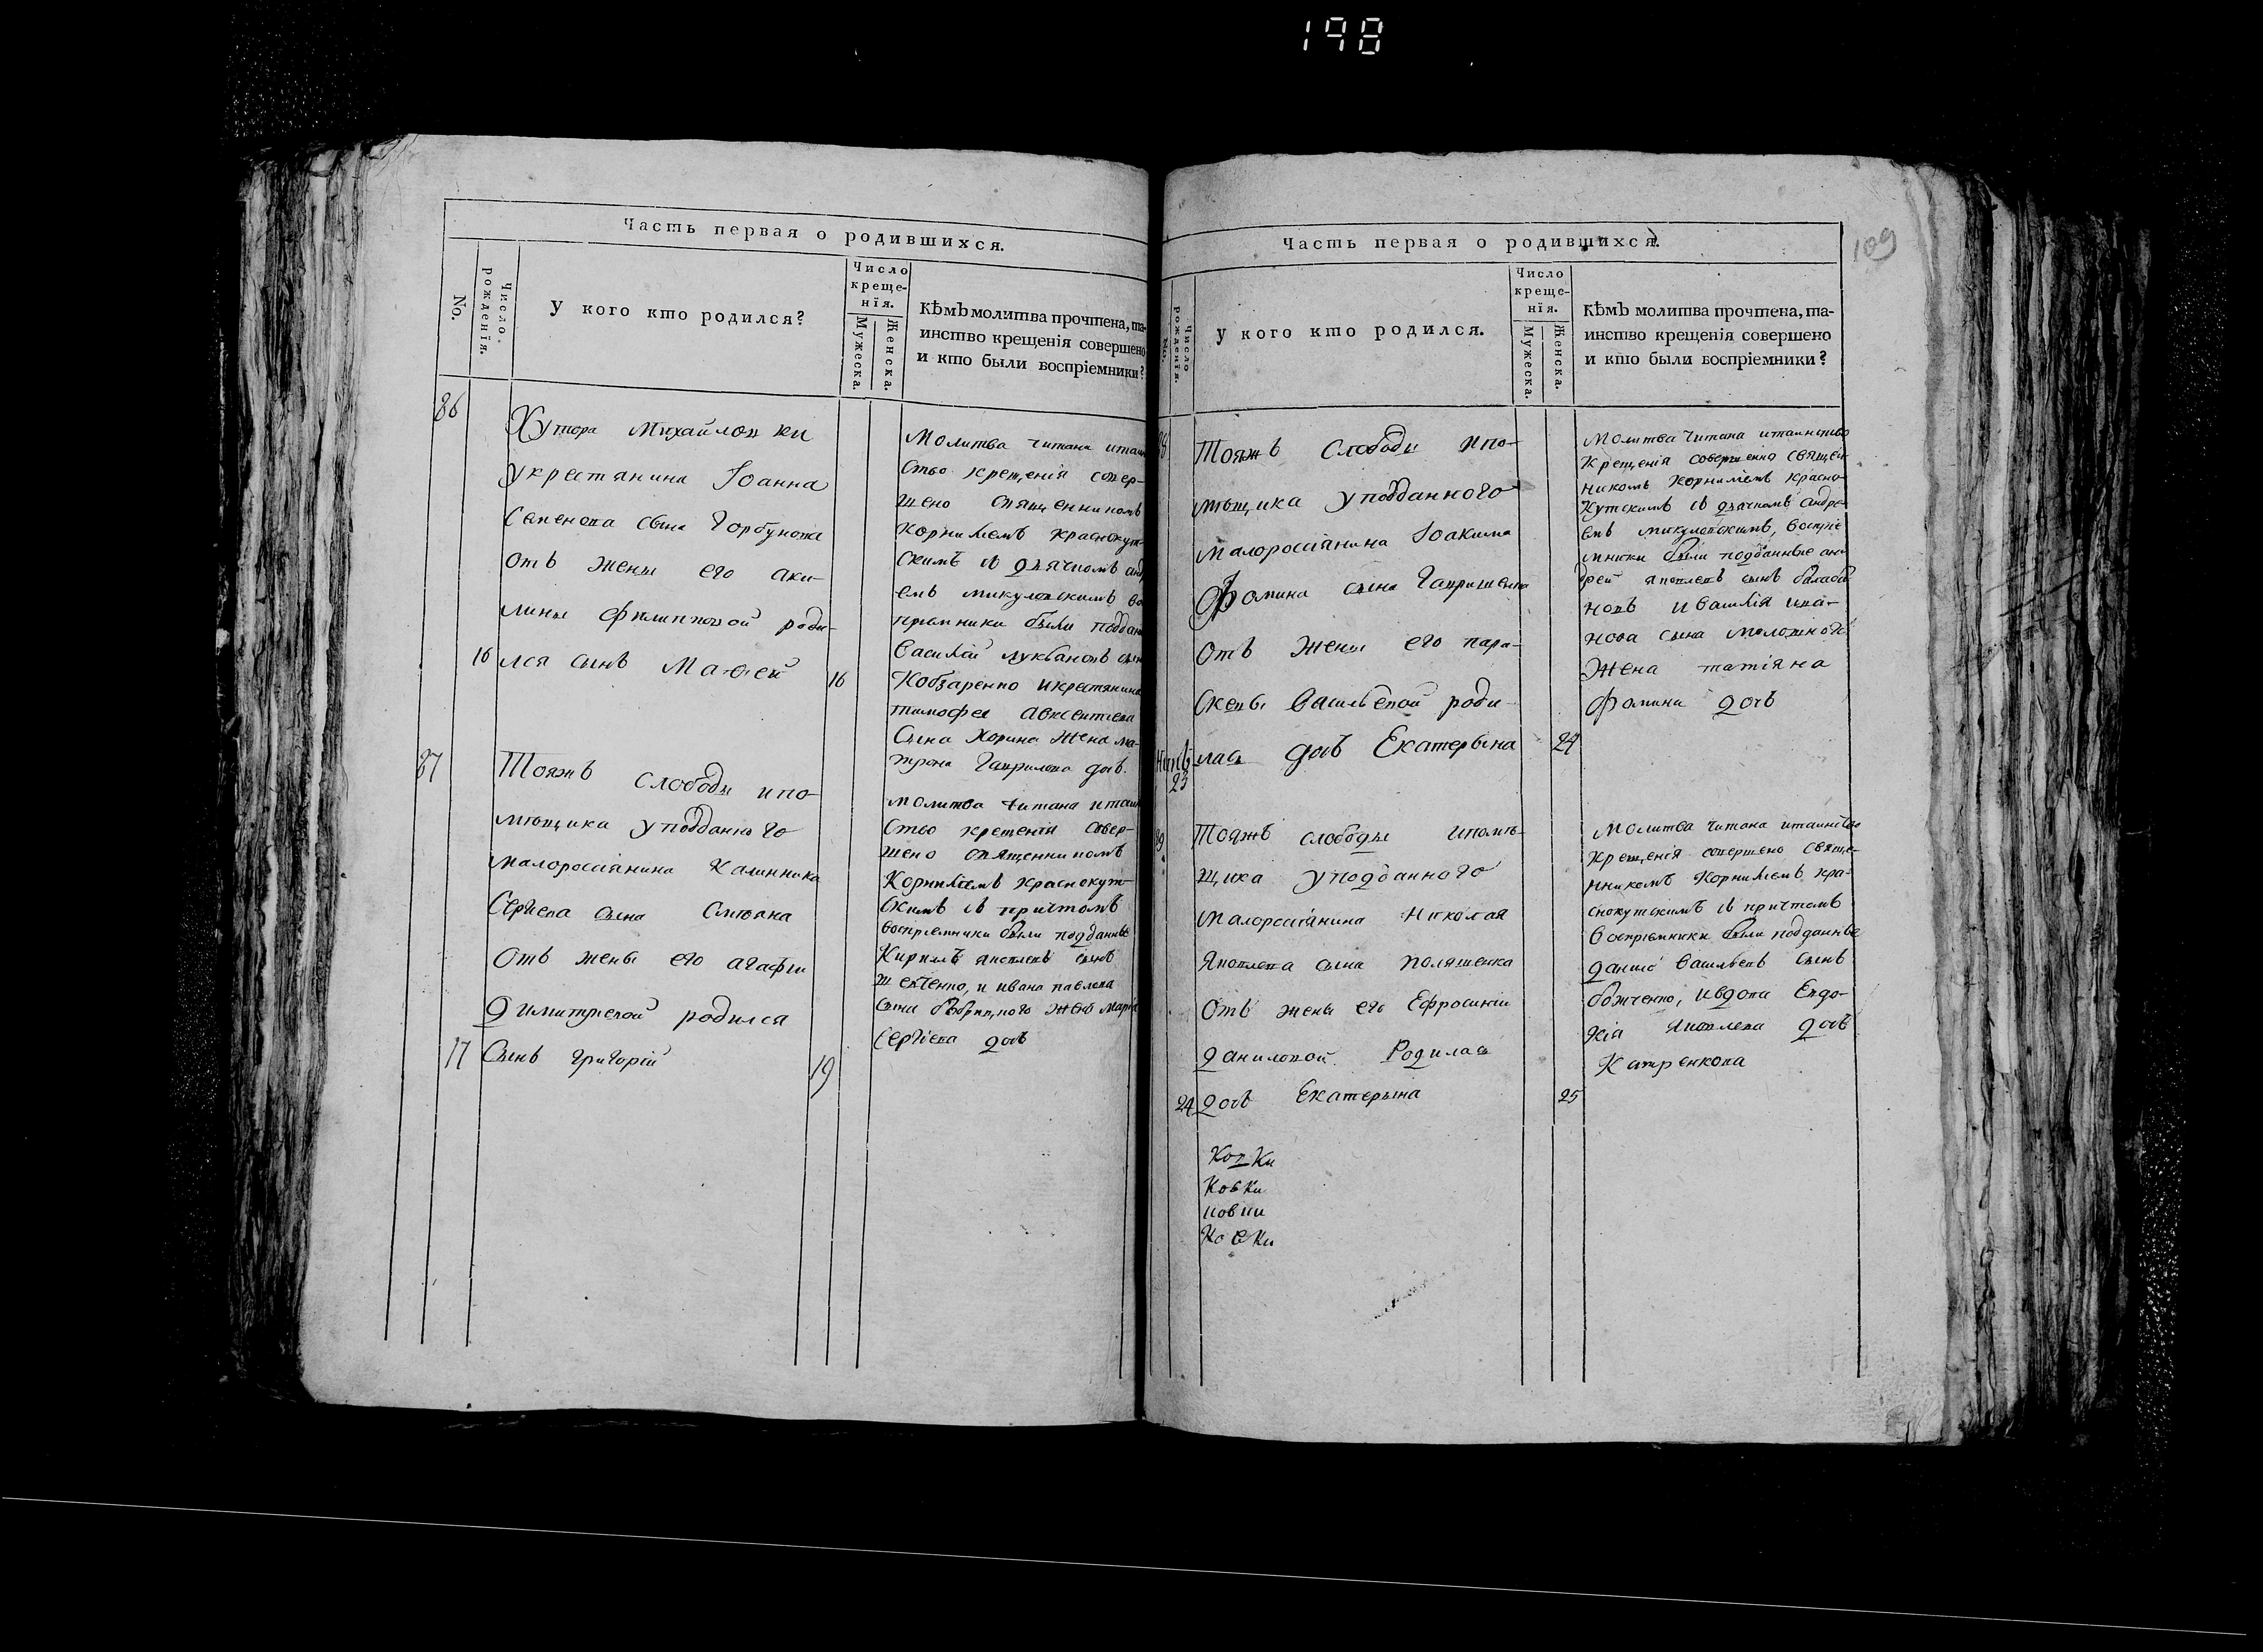 198
109
Часть первая о родившихся.
No.
Число рожденїя.
У кого кто родился?
Число креще-
нїя.
Мужеска.
Женска.
Кѣмъ молитва прочтена, та-
инство крещенїя совершено
и кто были воспрїемники?
86
Хутора Михайловки
укрестянина Іоанна
Семенова сына Горбунова
отъ жены его аки-
лины Филипповой роди-
16 лся сынъ Матѳей 16
Молитва читана итаин
ство крещенія совер-
шено священникомъ
Корниліемъ краснокут-
скимъ съ дьячкомъ анд
емъ микуловскимъ во
прѣмники были поддан
Василій лукьяновъ сын
Кобзаренко икрестянина
тимофея авксентиева
сына Хорина жена ма-
трона Гаврилова дочь.
87
Тояжъ слободы ипо-
мѣщика уподданнаго
малороссіянина Калинника
Сергіева сына Смѣяна
отъ жены его агафіи
Димитриевой родился
17 Сынъ григорій 19
молитва читана итаин
ство крещенія совер-
шено священникомъ
Корниліемъ краснокут-
скимъ съ причтомъ
воспріемники были подданные
Кирилъ яковлевъ сынъ
шевченко, и ивана павлова
сына жена марія
Сергіева дочь
Часть первая о родившихся.
No.
Число рожденїя.
У кого кто родился.
Число креще-
нїя.
Мужеска.
Женска.
Кѣмъ молитва прочтена, та-
инство крещенїя совершено
и кто были воспрїемники?
88
Тояжъ Слободы ипо-
мѣщика уподданного
малороссіянина Іоакима
Фомина сына Гавришенка
отъ жены его пара-
скевы васильевой роди-
23 лась дочь Екатерына 24
Молитва читана итаинство
Крещенія совершенно священ
никомъ Корниліемъ красно-
кутскимъ съ дьячкомъ андре-
емъ микуловскимъ, воспріе
мники были подданные ан
дрей яковлевъ сынъ балаба
новъ ивасилія ива-
нова сына
жена татіяна
фомина дочь
89
Тояжъ слободы ипомѣ-
щика уподданного
малороссіянина Николая
Яковлева сына поляшенка
отъ жены его Ефросиніи
даниловой Родилась
24 дочь Екатерына 25
Молитва читана итаинство
Крещенія совершено свяще-
нникомъ Корниліемъ кра-
снокутскимъ съ причтомъ
воспріемники были подданные
данило васильевъ сынъ
божченко, ивдова Евдо-
кія яковлева дочь
Катренкова
Ковки
Ковки
ковки
Ковки